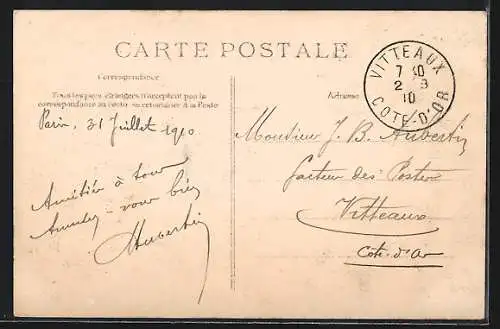 CARTE POSTALE
Correspondance
Tous les pays étrangers n'acceptent pas la
correspondance au recto, se renseigner à la Poste
Adresse
VITTEAUX
7 30
2 - 8
10
COTE-D'OR
Paris, 31 Juillet 1910
Amitiés à tous
vous bien
Aubertin
Monsieur J. B. Aubertin
facteur des Postes
Vitteaux
Côte-d'Or